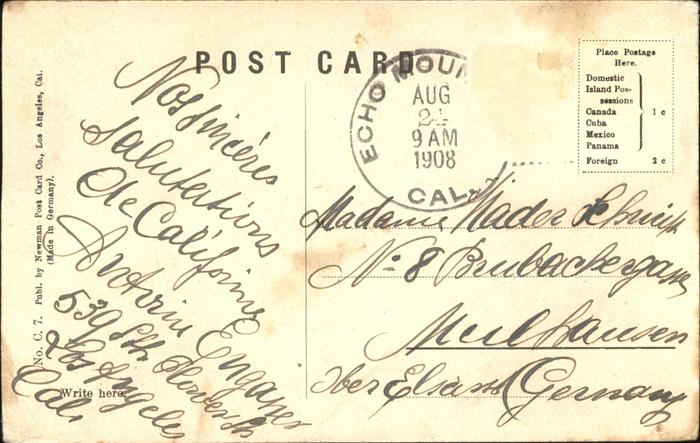 POST CARD
ECHO MOUN
AUG
24
9 AM
1908
CAL.
Place Postage
Here.
Domestic
Island Pos-
sessions
Canada
Cuba
Mexico
Panama
1 c
Foreign 2 c
No. C. 7. Publ. by Newman Post Card Co., Los Angeles, Cal.
(Made in Germany).
Nos sincères
salutations
de Californie
539 Sth Flower St
Los Angeles
Cal.
Write here.
Madame
No 8 Brubachergasse
Meulhausen
Ober Elsass (Germany